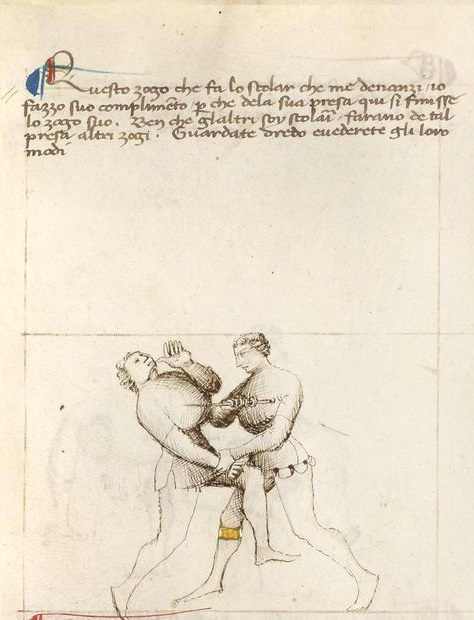 Questo zogo che fa lo scolar che me denanzi io
fazzo suo complimēto p̱ che dela sua presa qui si finisse
lo zogo suo. Ben che gl'altri soy scolari farano de tal
presa altri zogi. Guardate dredo e vederete gli loro
modi